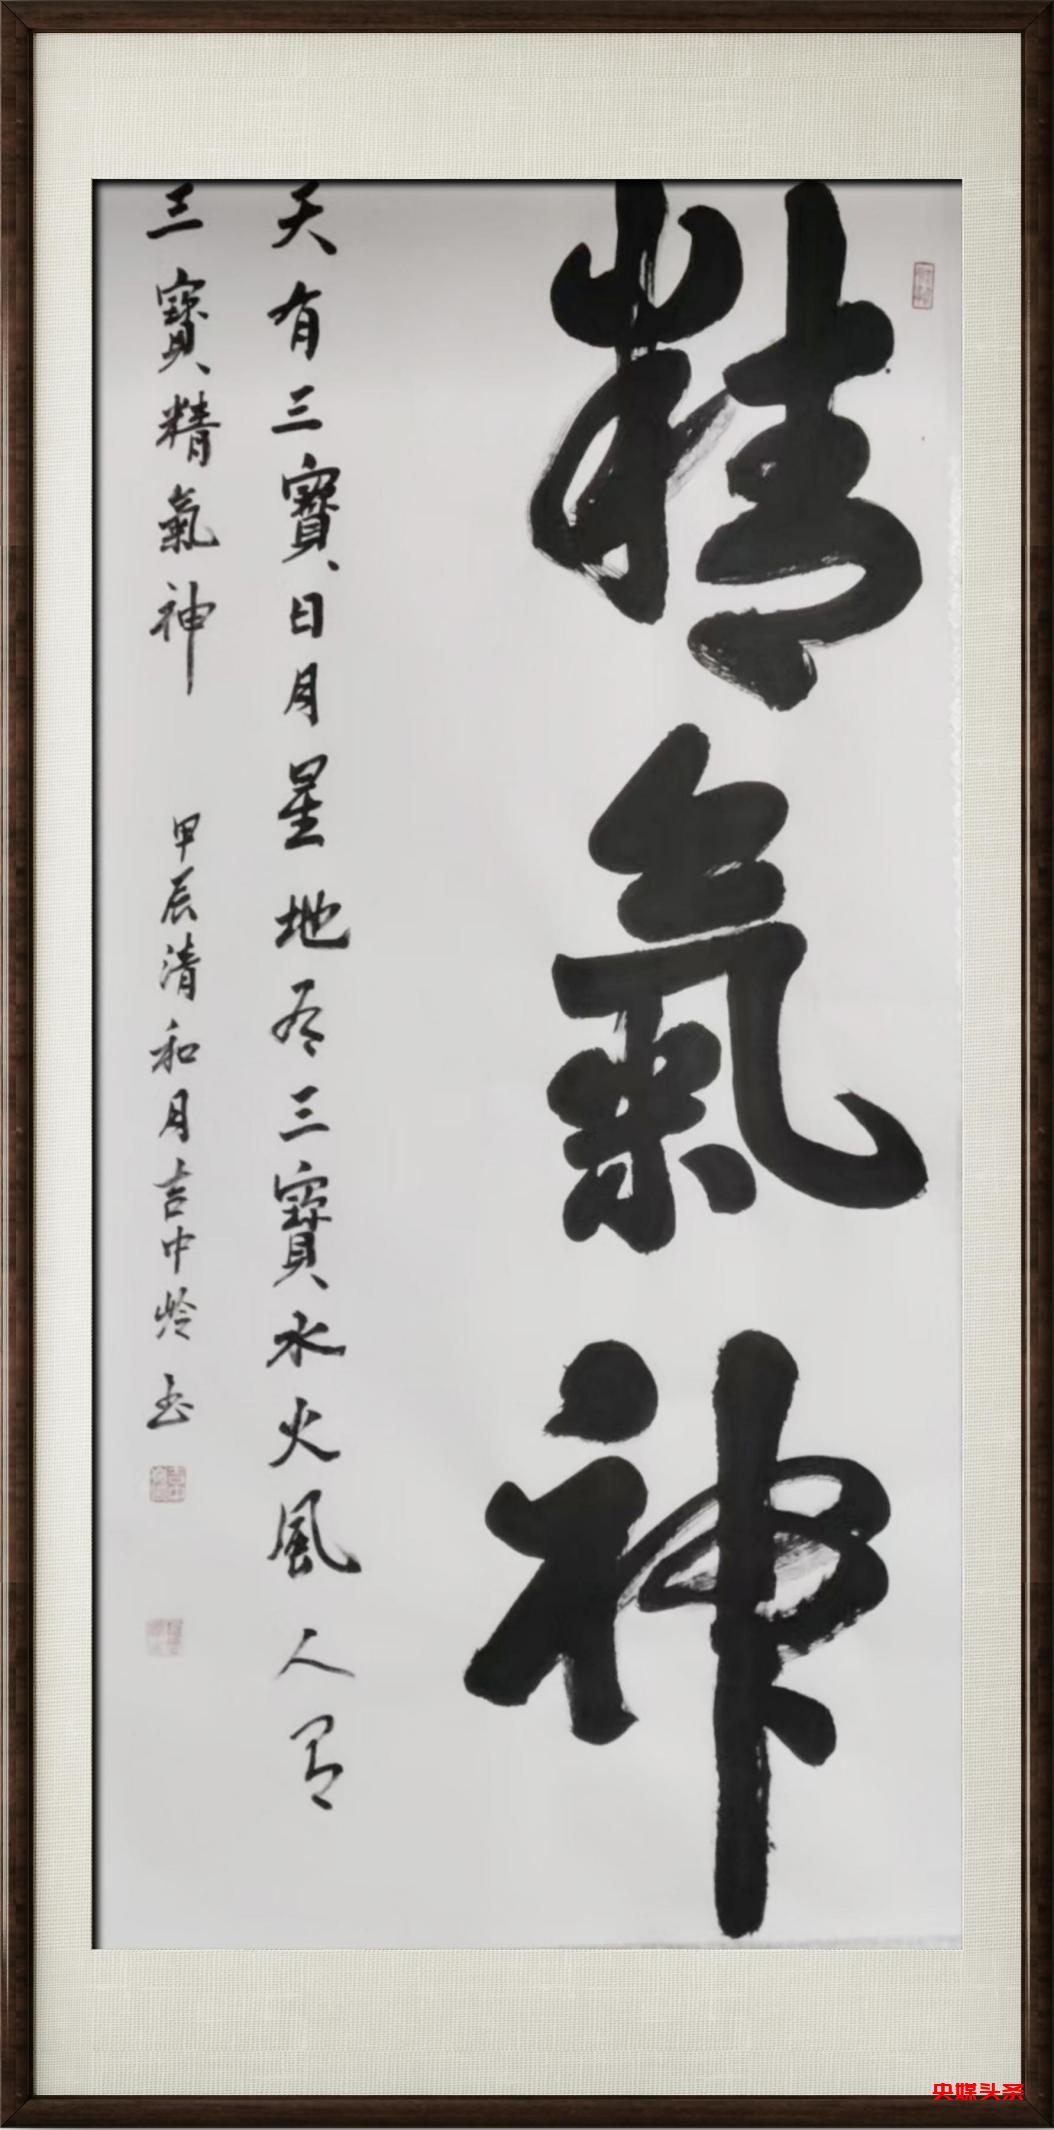 精氣神
天有三寶日月星地有三寶水火風人有
三寶精氣神
甲辰清和月吉中岭書
央媒头条